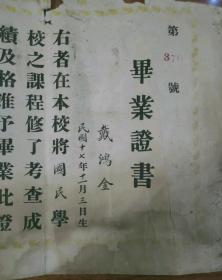 第
號
畢業證書
戴鴻金
民國十七年十一月三日生
右者在本校將國民學
校之課程修了考查成
績及格准予畢業此證